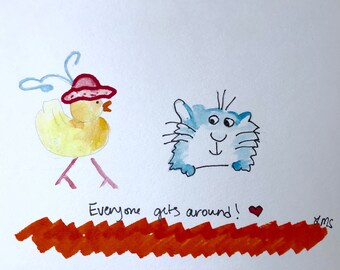 Everyone gets around! ♥
LMS